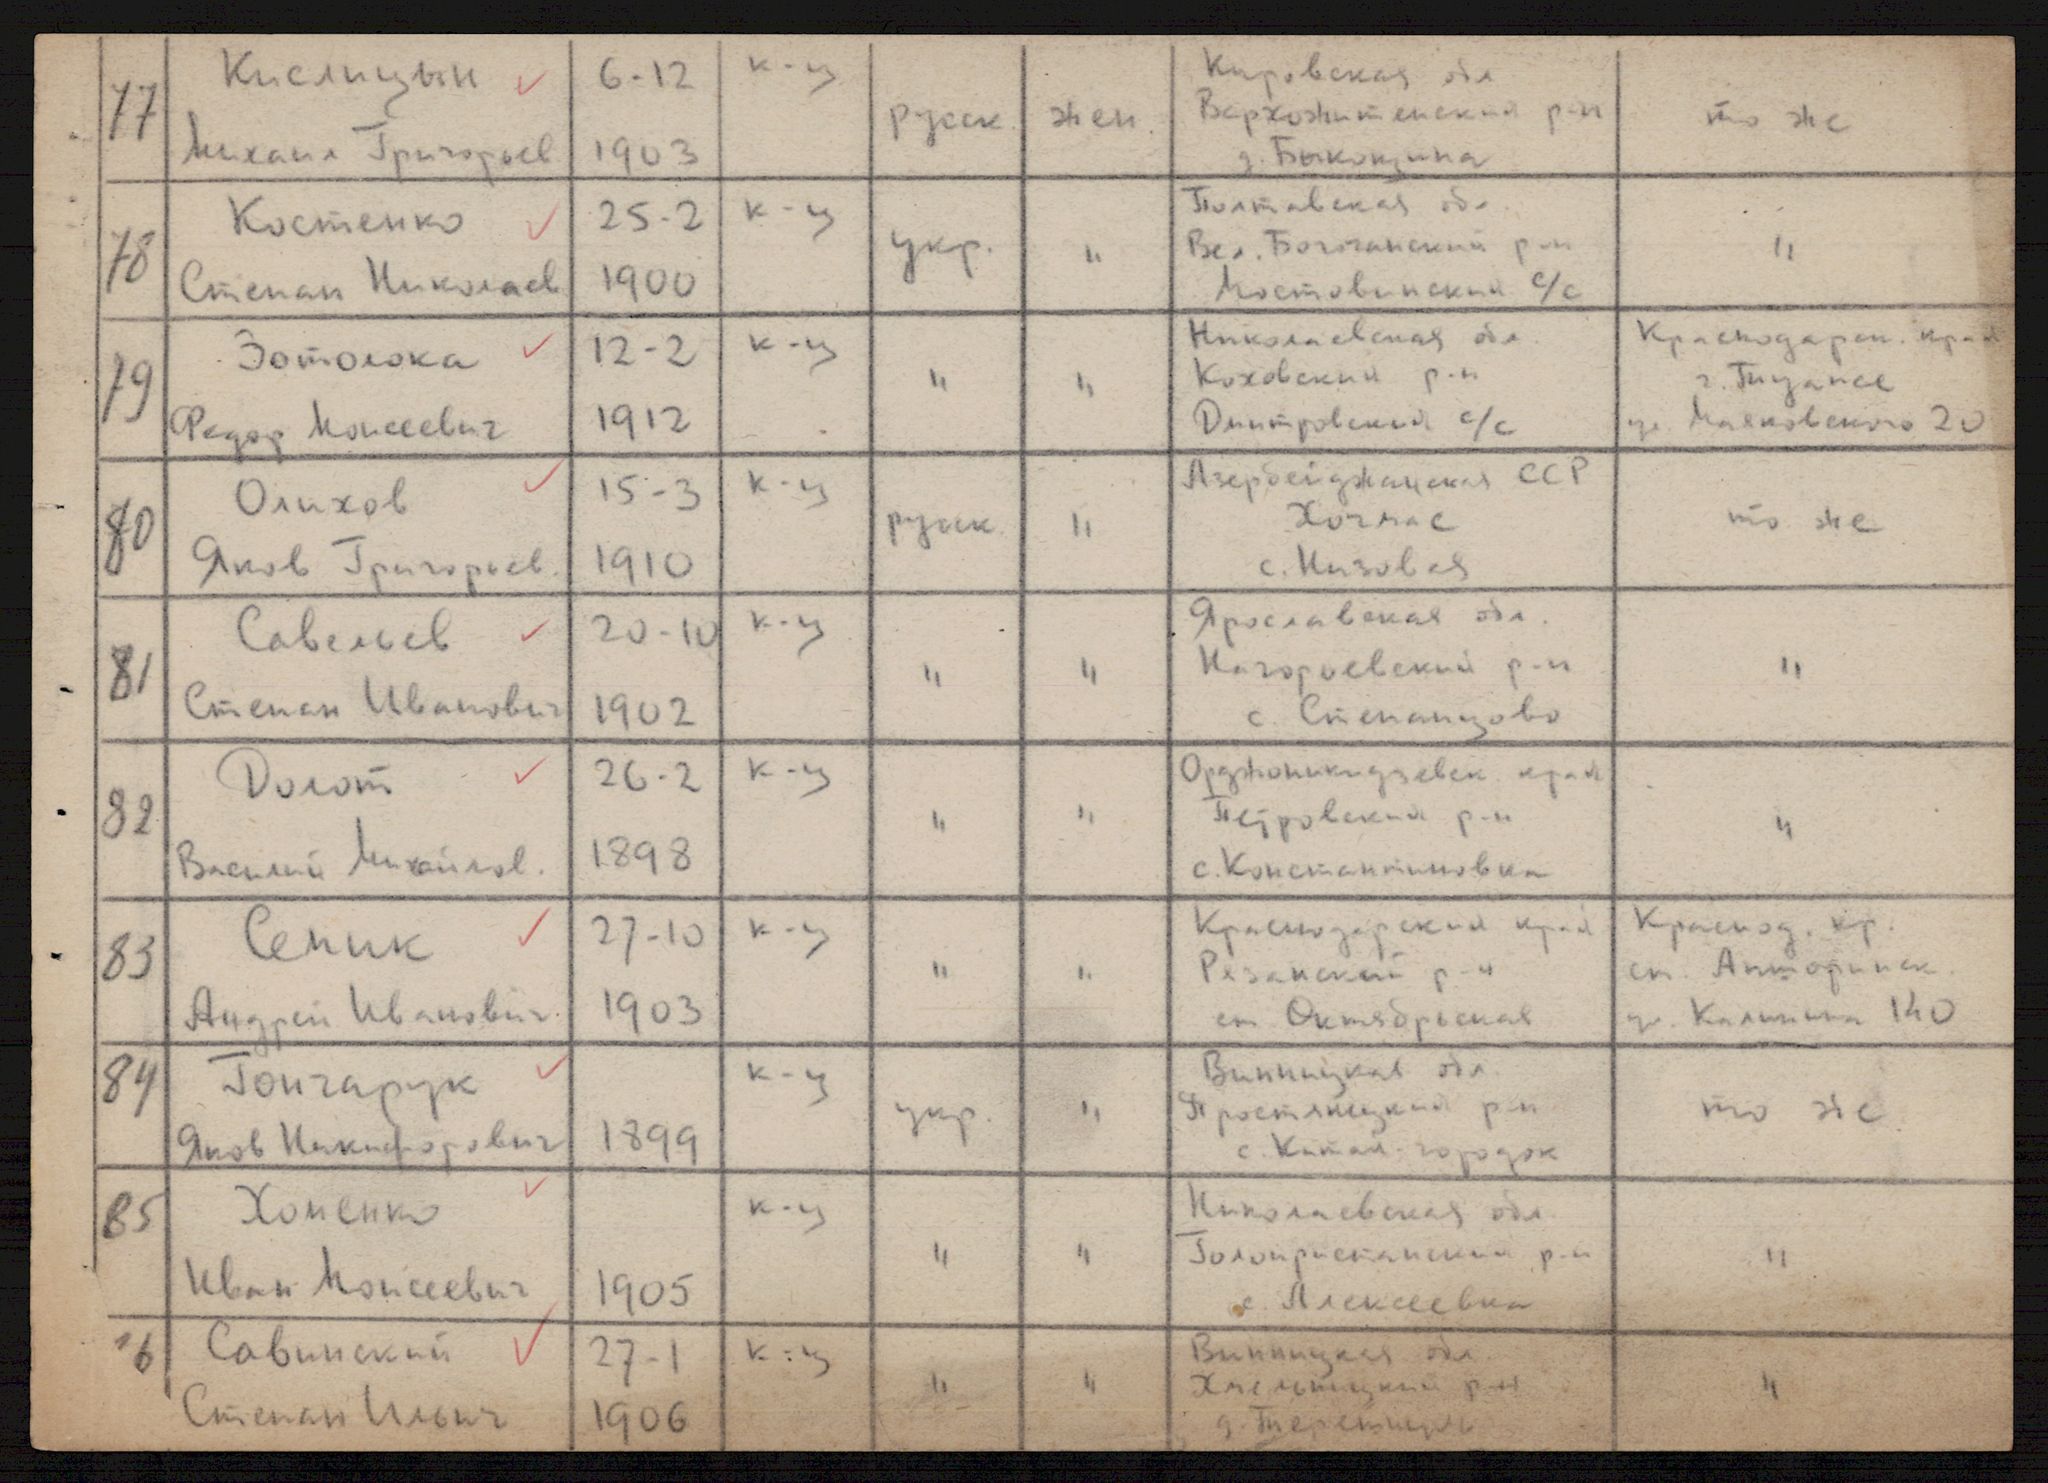 77 Кислицын 6-12 к-ц Кировская обл
русск. жен. Верхожитенский р-н то же
Михаил Григорьев 1903 д. Быковщина
78 Костенко 25-2 к-ц Полтавская обл.
укр. " Вел. Богочанский р-н "
Степан Николаев 1900 Мостовинский с/с
79 Зотолока 12-2 к-ц Николаевская обл. Краснодарск. край
" " Коховский р-н г. Туапсе
Федор Моисеевич 1912 Дмитровский с/с ул. Маяковского 20
80 Олихов 15-3 к-ц Азербейджанская ССР
русск " Хочмас то же
Яков Григорьев. 1910 с. Низовая
81 Савельев 20-10 к-ц Ярославская обл.
" " Нагорьевский р-н "
Степан Иванович 1902 с. Степанцово
82 Долот 26-2 к-ц Орджоникидзевск. край
" " Петровский р-н "
Василий Михайлов. 1898 с. Константиновка
83 Семик 27-10 к-ц Краснодарский край Краснод. кр.
" " Рязанский р-н ст.
Андрей Иванович. 1903 ст. Октябрьская ул. Калинина 140
84 Гончарук к-ц Винницкая обл.
укр. " Тростянецкий р-н то же
Яков Никифорович 1899 с. Китай-городок
85 Хоменко к-ц Николаевская обл
" " Голопристанский р-н "
Иван Моисеевич 1905 с. Алексеевка
6 Савинский 27-1 к-ц Винницкая обл.
" " Хмельницкий р-н "
Степан Ильич 1906 д.